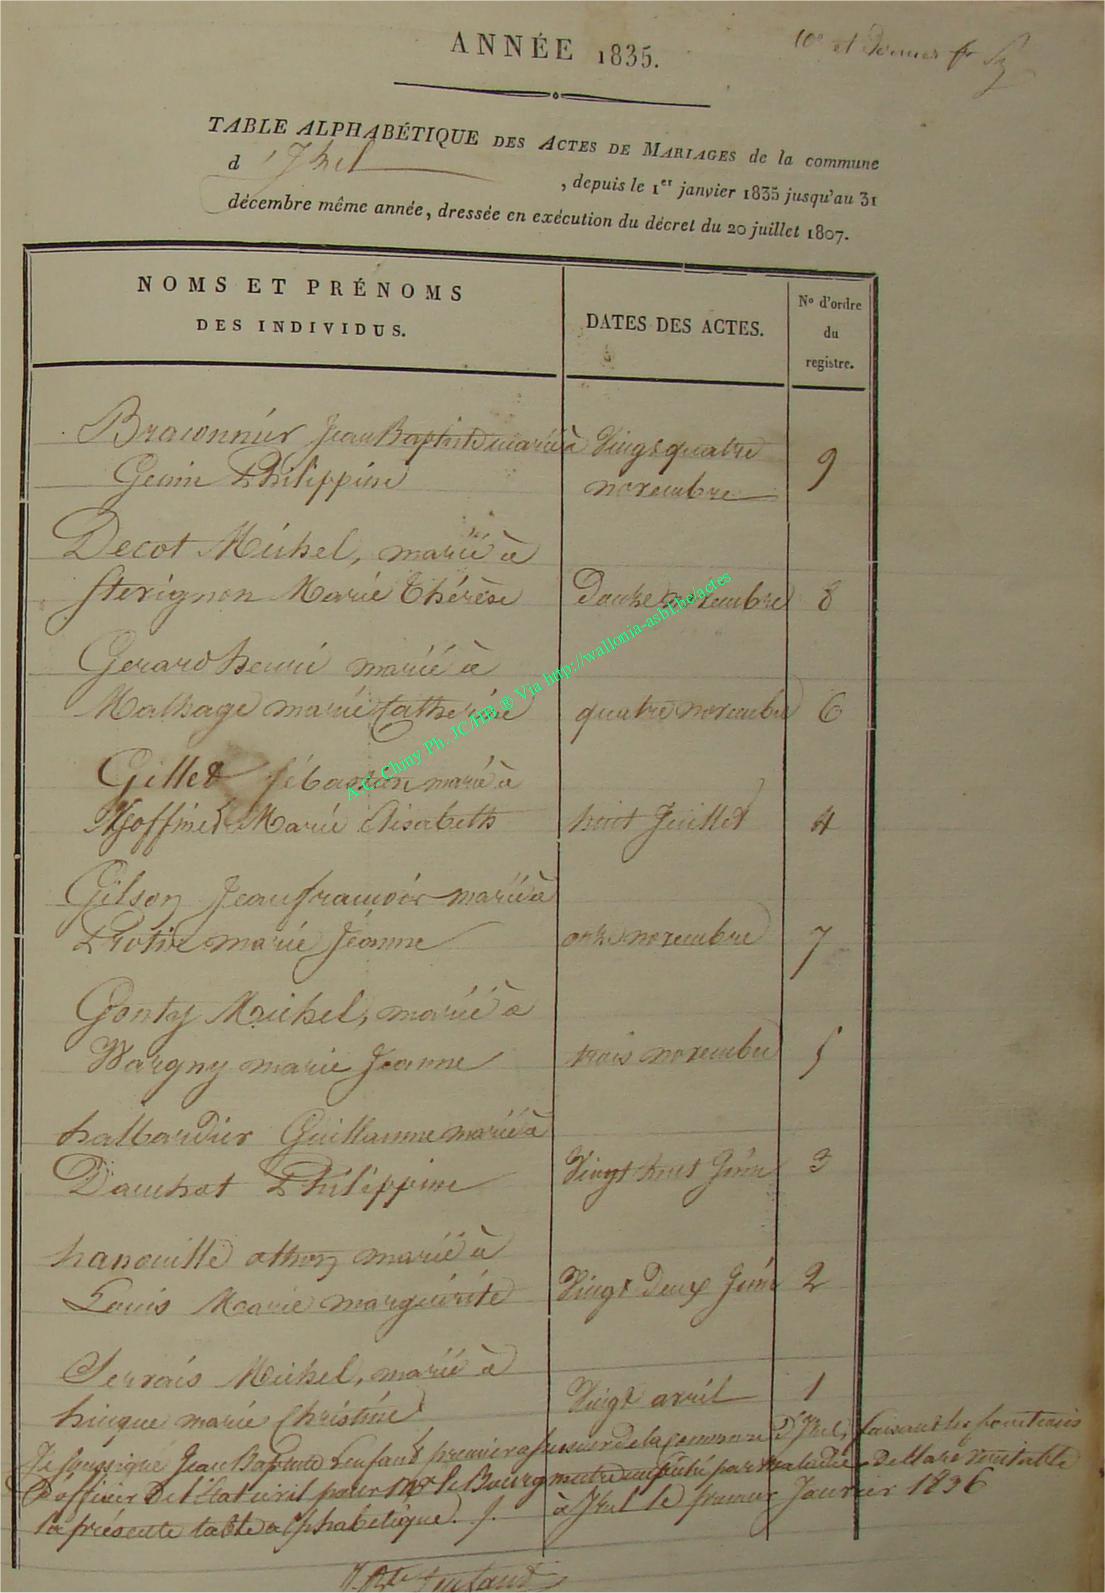 ANNÉE 1835.
10e et Dernier
TABLE ALPHABÉTIQUE DES ACTES DE MARIAGES de la commune
d'Jzel, depuis le 1er janvier 1835 jusqu'au 31
décembre même année, dressée en exécution du décret du 20 juillet 1807.
NOMS ET PRÉNOMS
DES INDIVIDUS.
DATES DES ACTES.
No d'ordre
du
registre.
Braconnier Jean Baptiste marié à Vingt quatre
Philippine novembre 9
Decot Michel, marié à
Marie Thérèse Douze novembre 8
Gerard henri marié à
Mathage marie Catherine quatre novembre 6
Gillet sébastien marié à
Goffinet Marie Elisabeth huit Juillet 4
Gilson Jean françois marié à
Protin marie Jeanne onze novembre 7
Gonty Michel, marié à
Wargny marie Jeanne trois novembre 5
halbardier Guillaume marié à
Dauchot Philippine Vingt huit Juin 3
hanouille othon marié à
Louis Marie marguérite Vingt Deux Juin 2
Servais Michel, marié à
hinque marie Christine Vingt avril 1
Je soussigné Jean Baptiste premier assesseur de la commune d'Jzel, faisant les fonctions
D'officier De l'Etat civil pour Mr le Bourgmestre empêché par maladie Déclare véritable
la présente table alphabétique. à Jzel le premier Janvier 1836
A.C. Chiny Ph. JC.HB ® Via http://wallonia-asbl.be/actes